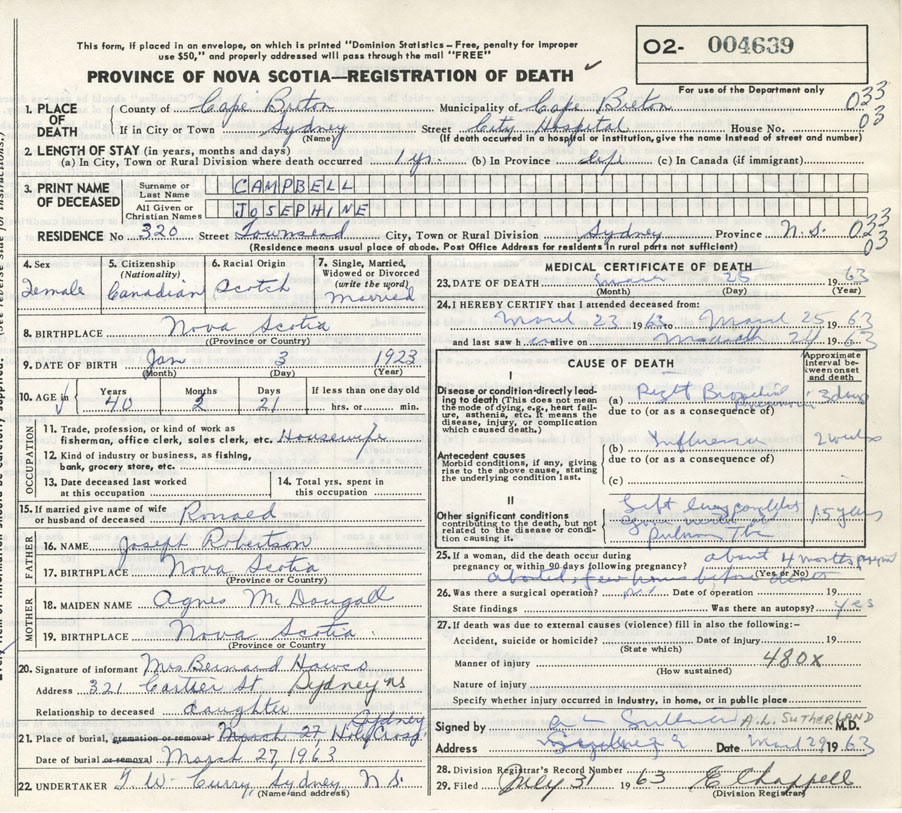 This form, if placed in an envelope, on which is printed "Dominion Statistics – Free, penalty for improper
use $50," and properly addressed will pass through the mail "FREE"
O2- 004639
For use of the Department only
PROVINCE OF NOVA SCOTIA—REGISTRATION OF DEATH
1. PLACE OF DEATH
County of Cape Breton Municipality of Cape Breton 033
If in City or Town Sydney Street City Hospital House No. 03
(Name) (If death occurred in a hospital or institution, give the name instead of street and number)
2. LENGTH OF STAY (in years, months and days)
(a) In City, Town or Rural Division where death occurred 1 yr. (b) In Province life (c) In Canada (if immigrant)
3. PRINT NAME OF DECEASED
Surname or Last Name CAMPBELL
All Given or Christian Names JOSEPHINE
RESIDENCE No 320 Street Townsend City, Town or Rural Division Sydney Province N.S. 033
03
(Residence means usual place of abode. Post Office Address for residents in rural parts not sufficient)
4. Sex Female
5. Citizenship (Nationality) Canadian
6. Racial Origin Scotch
7. Single, Married, Widowed or Divorced (write the word) Married
8. BIRTHPLACE Nova Scotia
(Province or Country)
9. DATE OF BIRTH Jan 3 1923
(Month) (Day) (Year)
10. AGE in Years 40 Months 2 Days 21 If less than one day old hrs. or min.
OCCUPATION
11. Trade, profession, or kind of work as fisherman, office clerk, sales clerk, etc. Housewife
12. Kind of industry or business, as fishing, bank, grocery store, etc.
13. Date deceased last worked at this occupation
14. Total yrs. spent in this occupation
15. If married give name of wife or husband of deceased Ronald
FATHER
16. NAME Joseph Robertson
17. BIRTHPLACE Nova Scotia
(Province or Country)
MOTHER
18. MAIDEN NAME Agnes McDougall
19. BIRTHPLACE Nova Scotia
(Province or Country)
20. Signature of informant Mrs Bernard
Address 321 Cartier St. Sydney NS
Relationship to deceased daughter
21. Place of burial, cremation or removal March 27 Holy Cross Sydney
Date of burial or removal March 27, 1963
22. UNDERTAKER T.W. Curry, Sydney N.S.
(Name and address)
MEDICAL CERTIFICATE OF DEATH
23. DATE OF DEATH 25 1963
(Month) (Day) (Year)
24. I HEREBY CERTIFY that I attended deceased from:
March 23 1963 to March 25 1963
and last saw h alive on March 24 1963
CAUSE OF DEATH
Approximate interval between onset and death
I
Disease or condition directly leading to death (This does not mean the mode of dying, e.g., heart failure, asthenia, etc. It means the disease, injury, or complication which caused death.)
(a) Right 3 days
due to (or as a consequence of)
Antecedent causes
Morbid conditions, if any, giving rise to the above cause, stating the underlying condition last.
(b) Influenza 2 weeks
due to (or as a consequence of)
(c)
II
Other significant conditions contributing to the death, but not related to the disease or condition causing it.
Left lung 15 years
25. If a woman, did the death occur during pregnancy or within 90 days following pregnancy? about 4 months
(Yes or No)
aborted few hours before
26. Was there a surgical operation? no Date of operation 19
State findings Was there an autopsy? yes
27. If death was due to external causes (violence) fill in also the following:–
Accident, suicide or homicide? Date of injury 19
(State which)
Manner of injury 480X
(How sustained)
Nature of injury
Specify whether injury occurred in industry, in home, or in public place
Signed by A.L. SUTHERLAND M.D.
Address Date March 29 1963
28. Division Registrar's Record Number
29. Filed July 31 1963 E Chappell
(Division Registrar)